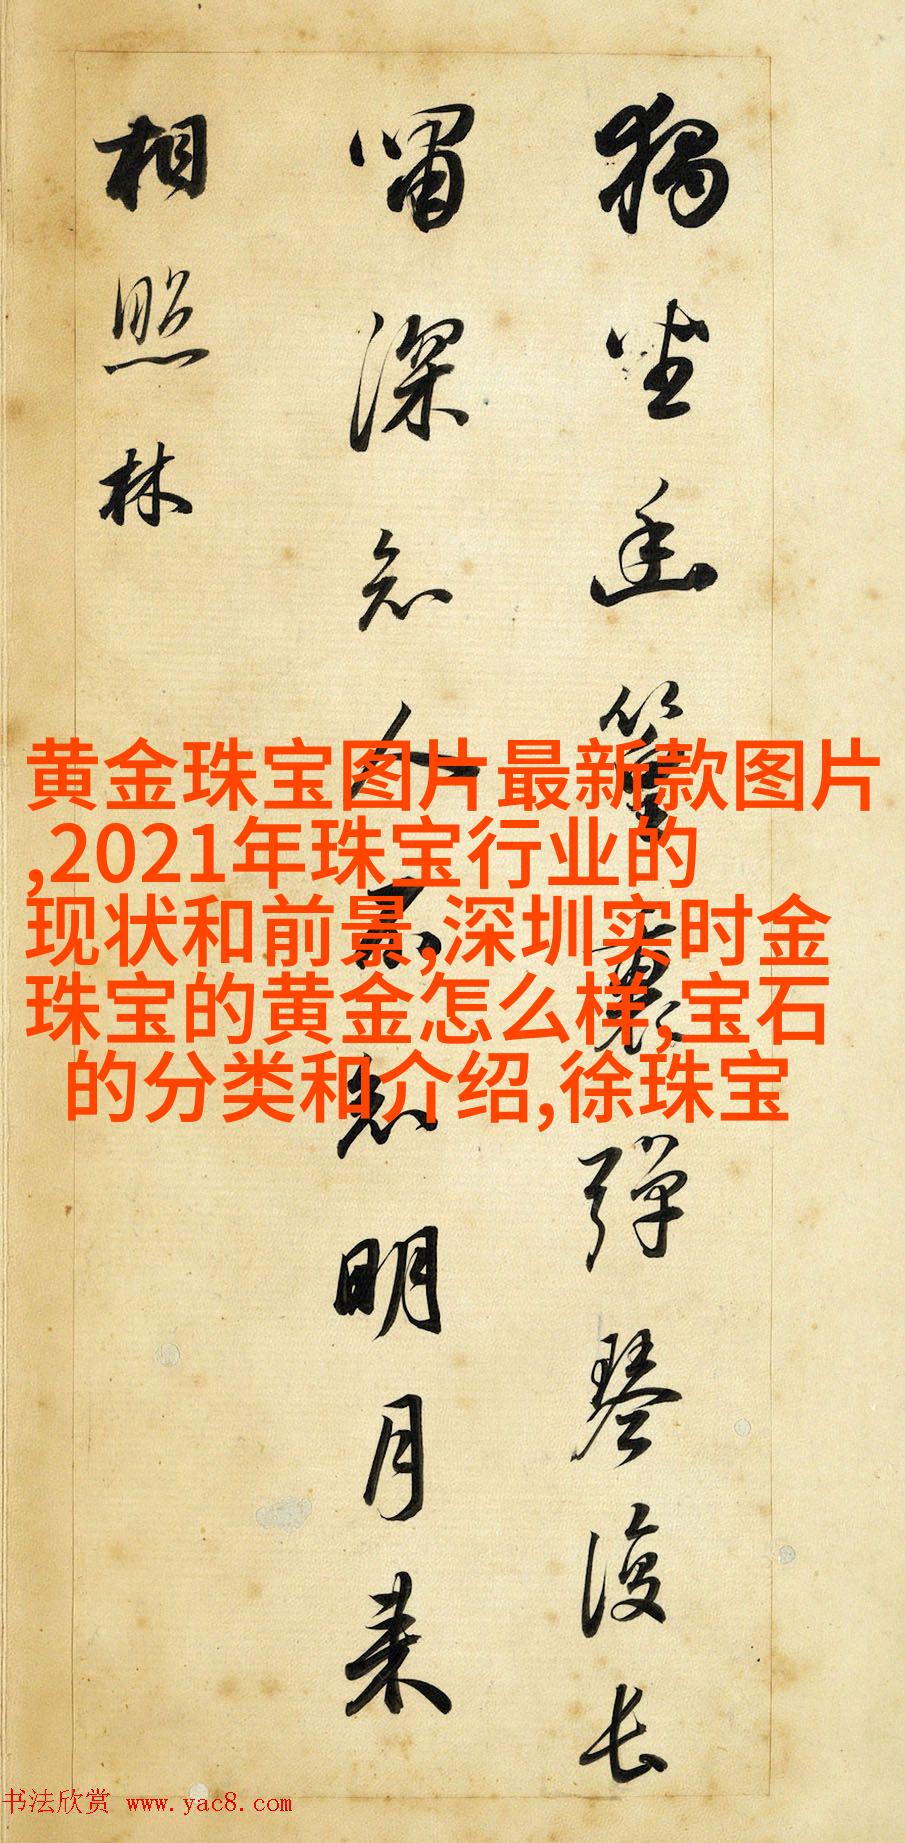 獨坐幽篁裏彈琴復長
嘯深知人不知明月来
相照林
黄金珠宝图片最新款图片
,2021年珠宝行业的
现状和前景,深圳实时金
珠宝的黄金怎么样,宝石
的分类和介绍,徐珠宝
书法欣赏 www.yac8.com